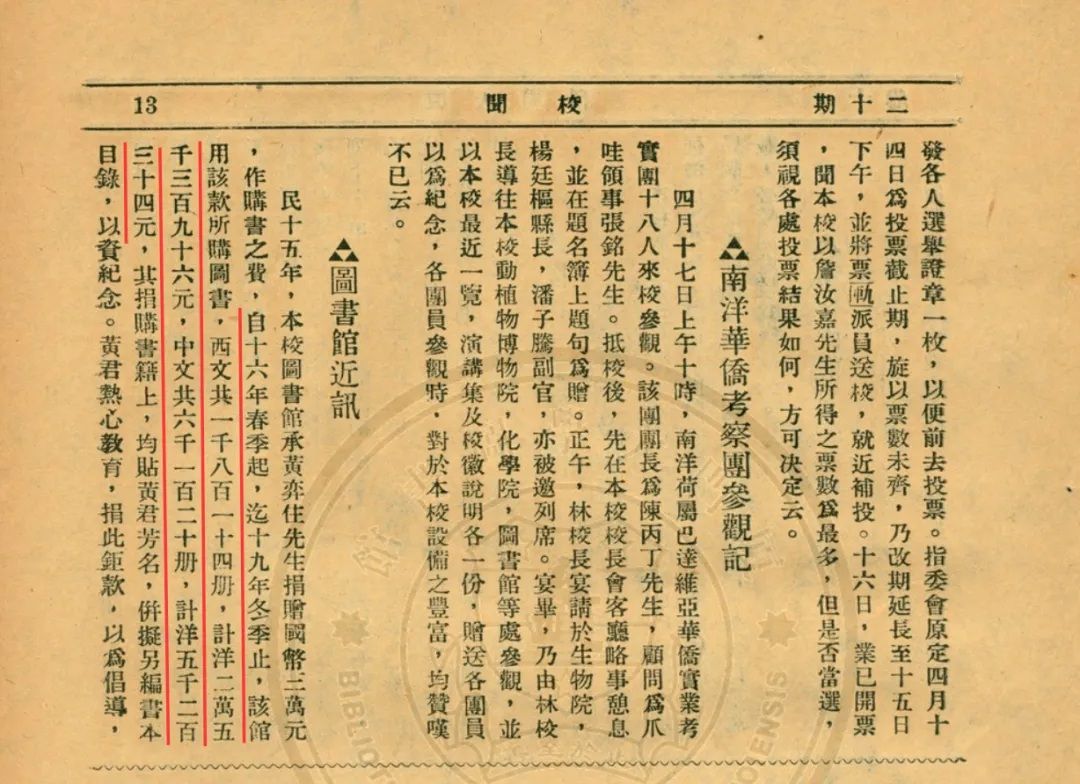 二十期
校聞
13
發各人選舉證章一枚，以便前去投票。指委會原定四月十
四日爲投票截止期，旋以票數未齊，乃改期延長至十五日
下午，並將票匭派員送校，就近補投。十六日，業已開票
，聞本校以詹汝嘉先生所得之票數爲最多，但是否當選，
須視各處投票結果如何，方可决定云。
南洋華僑考察團參觀記
四月十七日上午十時，南洋荷屬巴達維亞華僑實業考
實團十八人來校參觀。該團團長爲陳丙丁先生，顧問爲爪
哇領事張銘先生。抵校後，先在本校校長會客廳略事憩息
，並在題名簿上題句爲贈。正午，林校長宴請於生物院，
楊廷樞縣長，潘子騰副官，亦被邀列席。宴畢，乃由林校
長導往本校動植物博物院，化學院，圖書館等處參觀，並
以本校最近一覽，演講集及校徽說明各一份，贈送各團員
以爲紀念，各團員參觀時，對於本校設備之豐富，均贊嘆
不已云。
圖書館近訊
民十五年，本校圖書館承黃弈住先生捐贈國幣三萬元
，作購書之費，自十六年春季起，迄十九年冬季止，該館
用該款所購圖書，西文共一千八百一十四册，計洋二萬五
千三百九十六元，中文共六千一百二十册，計洋五千二百
三十四元，其捐購書籍上，均貼黃君芳名，併擬另編書本
目錄，以資紀念。黃君熱心教育，捐此鉅款，以爲倡導，
BIBLIOT
OENSIS